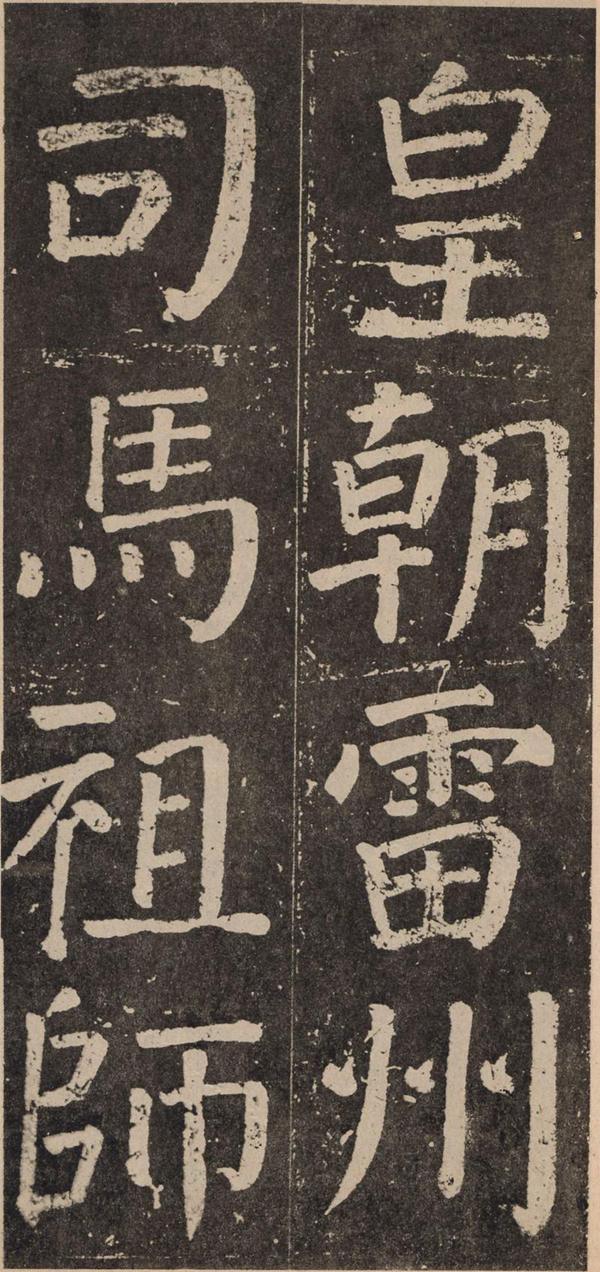 皇朝雷州
司馬祖師